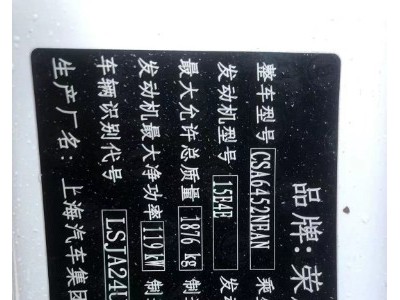 品牌: 荣
整车型号 CSA6452NEAN 乘
发动机型号 15E4E 发
最大允许总质量 1876 kg 制
发动机最大净功率 119 kW 制
车辆识别代号 LSJA24U
生产厂名: 上海汽车集团